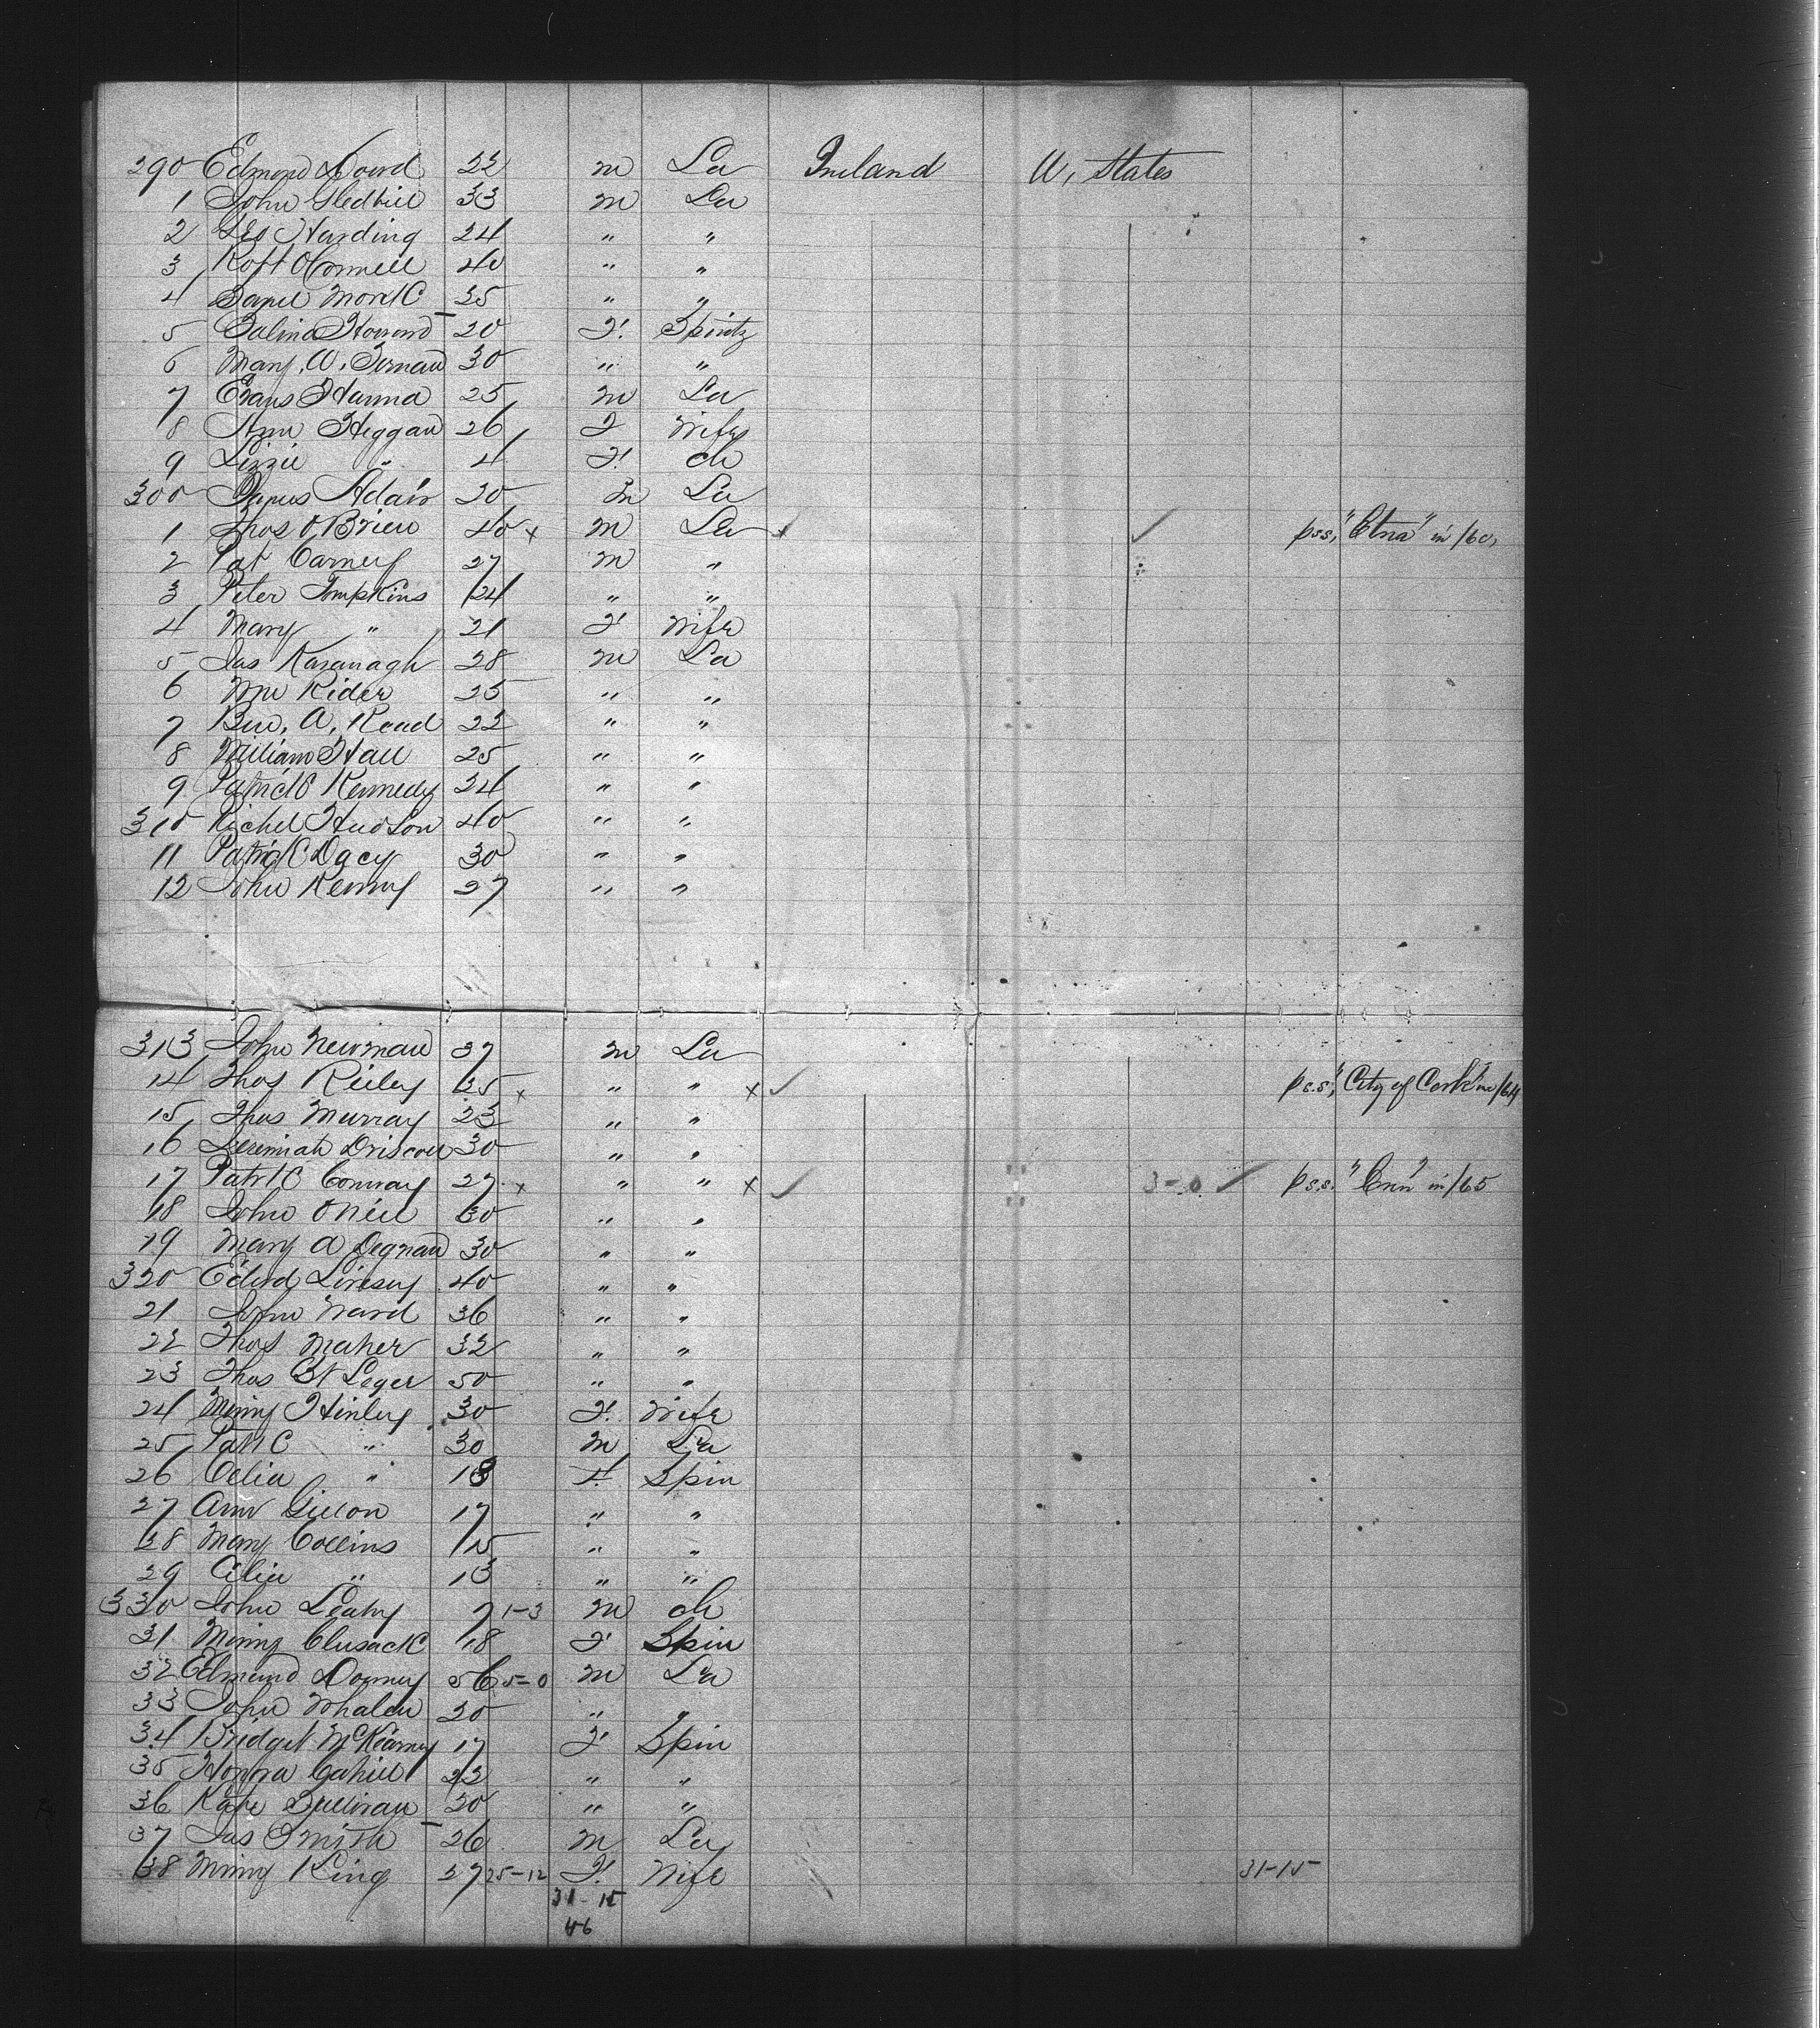 290 Edmond Dowd 22 m La Ireland U, States
1 John Gledhill 33 m La
2 Geo Harding 24 " "
3 Robt OConnell 40 " "
4 25 " "
5 20 F. Spintz
6 Mary, A, 30 " "
7 Evans Hanna 25 m La
8 Ann Heggan 26 F Wife
9 Lizzie " 4 F. ch
300 James Adair 20 m La
1 Thos O'Brien 40 x m La x ✓ pss, "Etna" in /60,
2 Pat Carney 27 m "
3 Peter Tompkins 24 " "
4 Mary " 21 F Wife
5 Jas Kavanagh 28 m La
6 Wm Rider 25 " "
7 Benj. A. Read 22 " "
8 William Hall 25 " "
9 Patrick Kennedy 24 " "
310 Richd Hudson 40 " "
11 Patrick Dacy 30 " "
12 John Kenny 27 " "
313 John Newman 37 m La
14 Thos Rieley 35 x " " x ✓ pss, "City of Cork" in /64
15 Thos Murray 23 " "
16 Jeremiah Driscoll 30 " "
17 Patrk Conway 27 x " " x ✓ 3-0 ✓ pss. " " in /65
18 John ONeil 30 " "
19 Mary A Degnan 30 " "
320 Edwd Linsey 40 " "
21 John Ward 36 " "
22 Thos Maher 32 " "
23 Thos St Leger 50 " "
24 Minny Hinley 30 F. Wife
25 Patk " 30 m La
26 Celia " 18 F. Spin
27 Ann Gillon 17 " "
28 Mary Collins 15 " "
29 Celia " 13 " "
330 John Leahy 7 1-3 m ch
31 Minny Clusack 18 F Spin
32 Edmund Downey 56 5-0 m La
33 John Whalen 20 " "
34 Bridget McKearney 17 F Spin
35 Honora Cahill 22 " "
36 Kate Sullivan 20 " "
37 Jas Smith 26 m La
38 Minny King 27 25-12 F. Wife 31-15
31-15
46